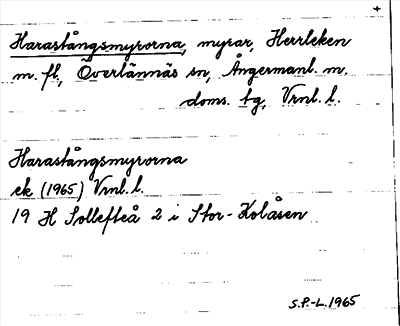 Harastångsmyrorna, myrar, Herrleken
m. fl., Överlännäs sn, Ångermanl. m.
doms. tg, Vrnl. l.
Harastångsmyrorna
ek (1965) Vrnl. l.
19 H Sollefteå 2 i Stor-Kolåsen
S.P.-L. 1965